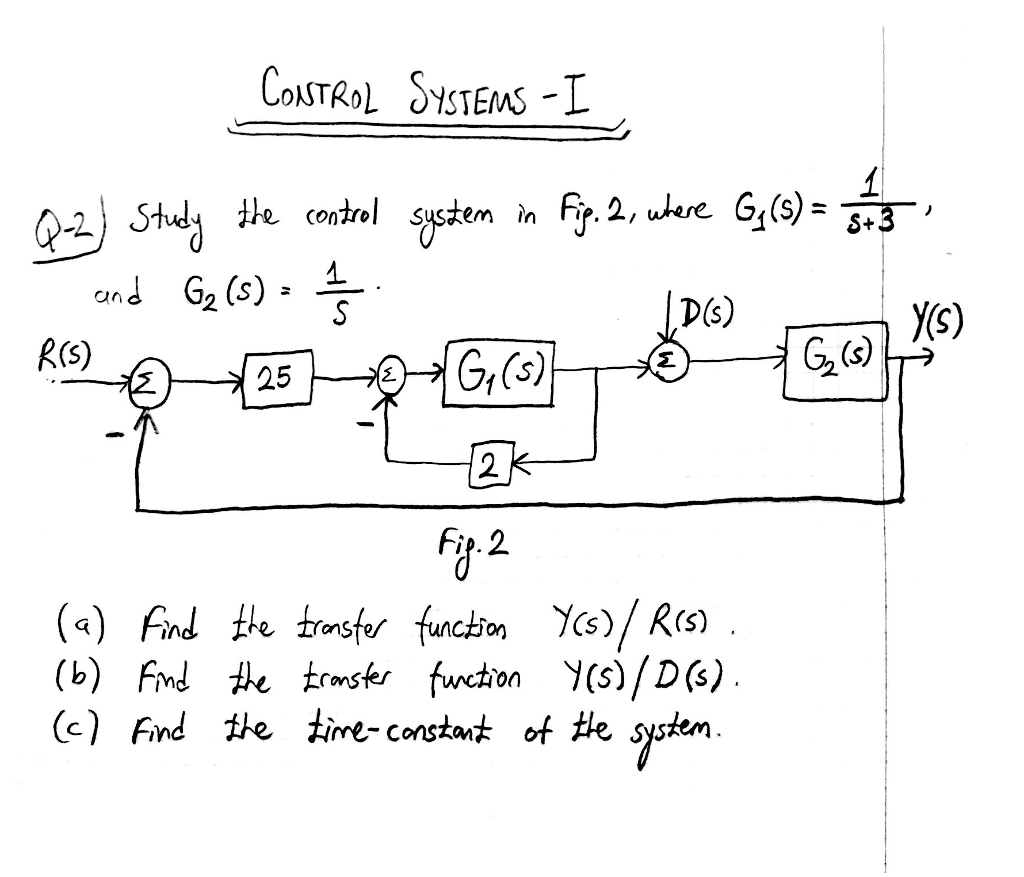 CONTROL SYSTEMS - I
Q-2) Study the control system in Fig. 2, where G₁(S) = 1/(S+3) ,
and G₂(S) = 1/S .
R(S) Σ 25 Σ G₁(S) D(S) Σ G₂(S) Y(S)
- - 2
Fig. 2
(a) Find the transfer function Y(S) / R(S) .
(b) Find the transfer function Y(S) / D(S) .
(c) Find the time-constant of the system.